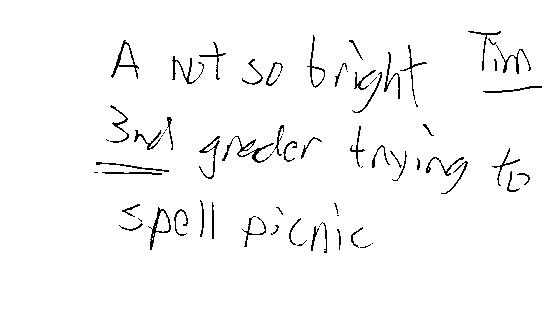 A not so bright Tim
3nd greder trying to
spell picnic